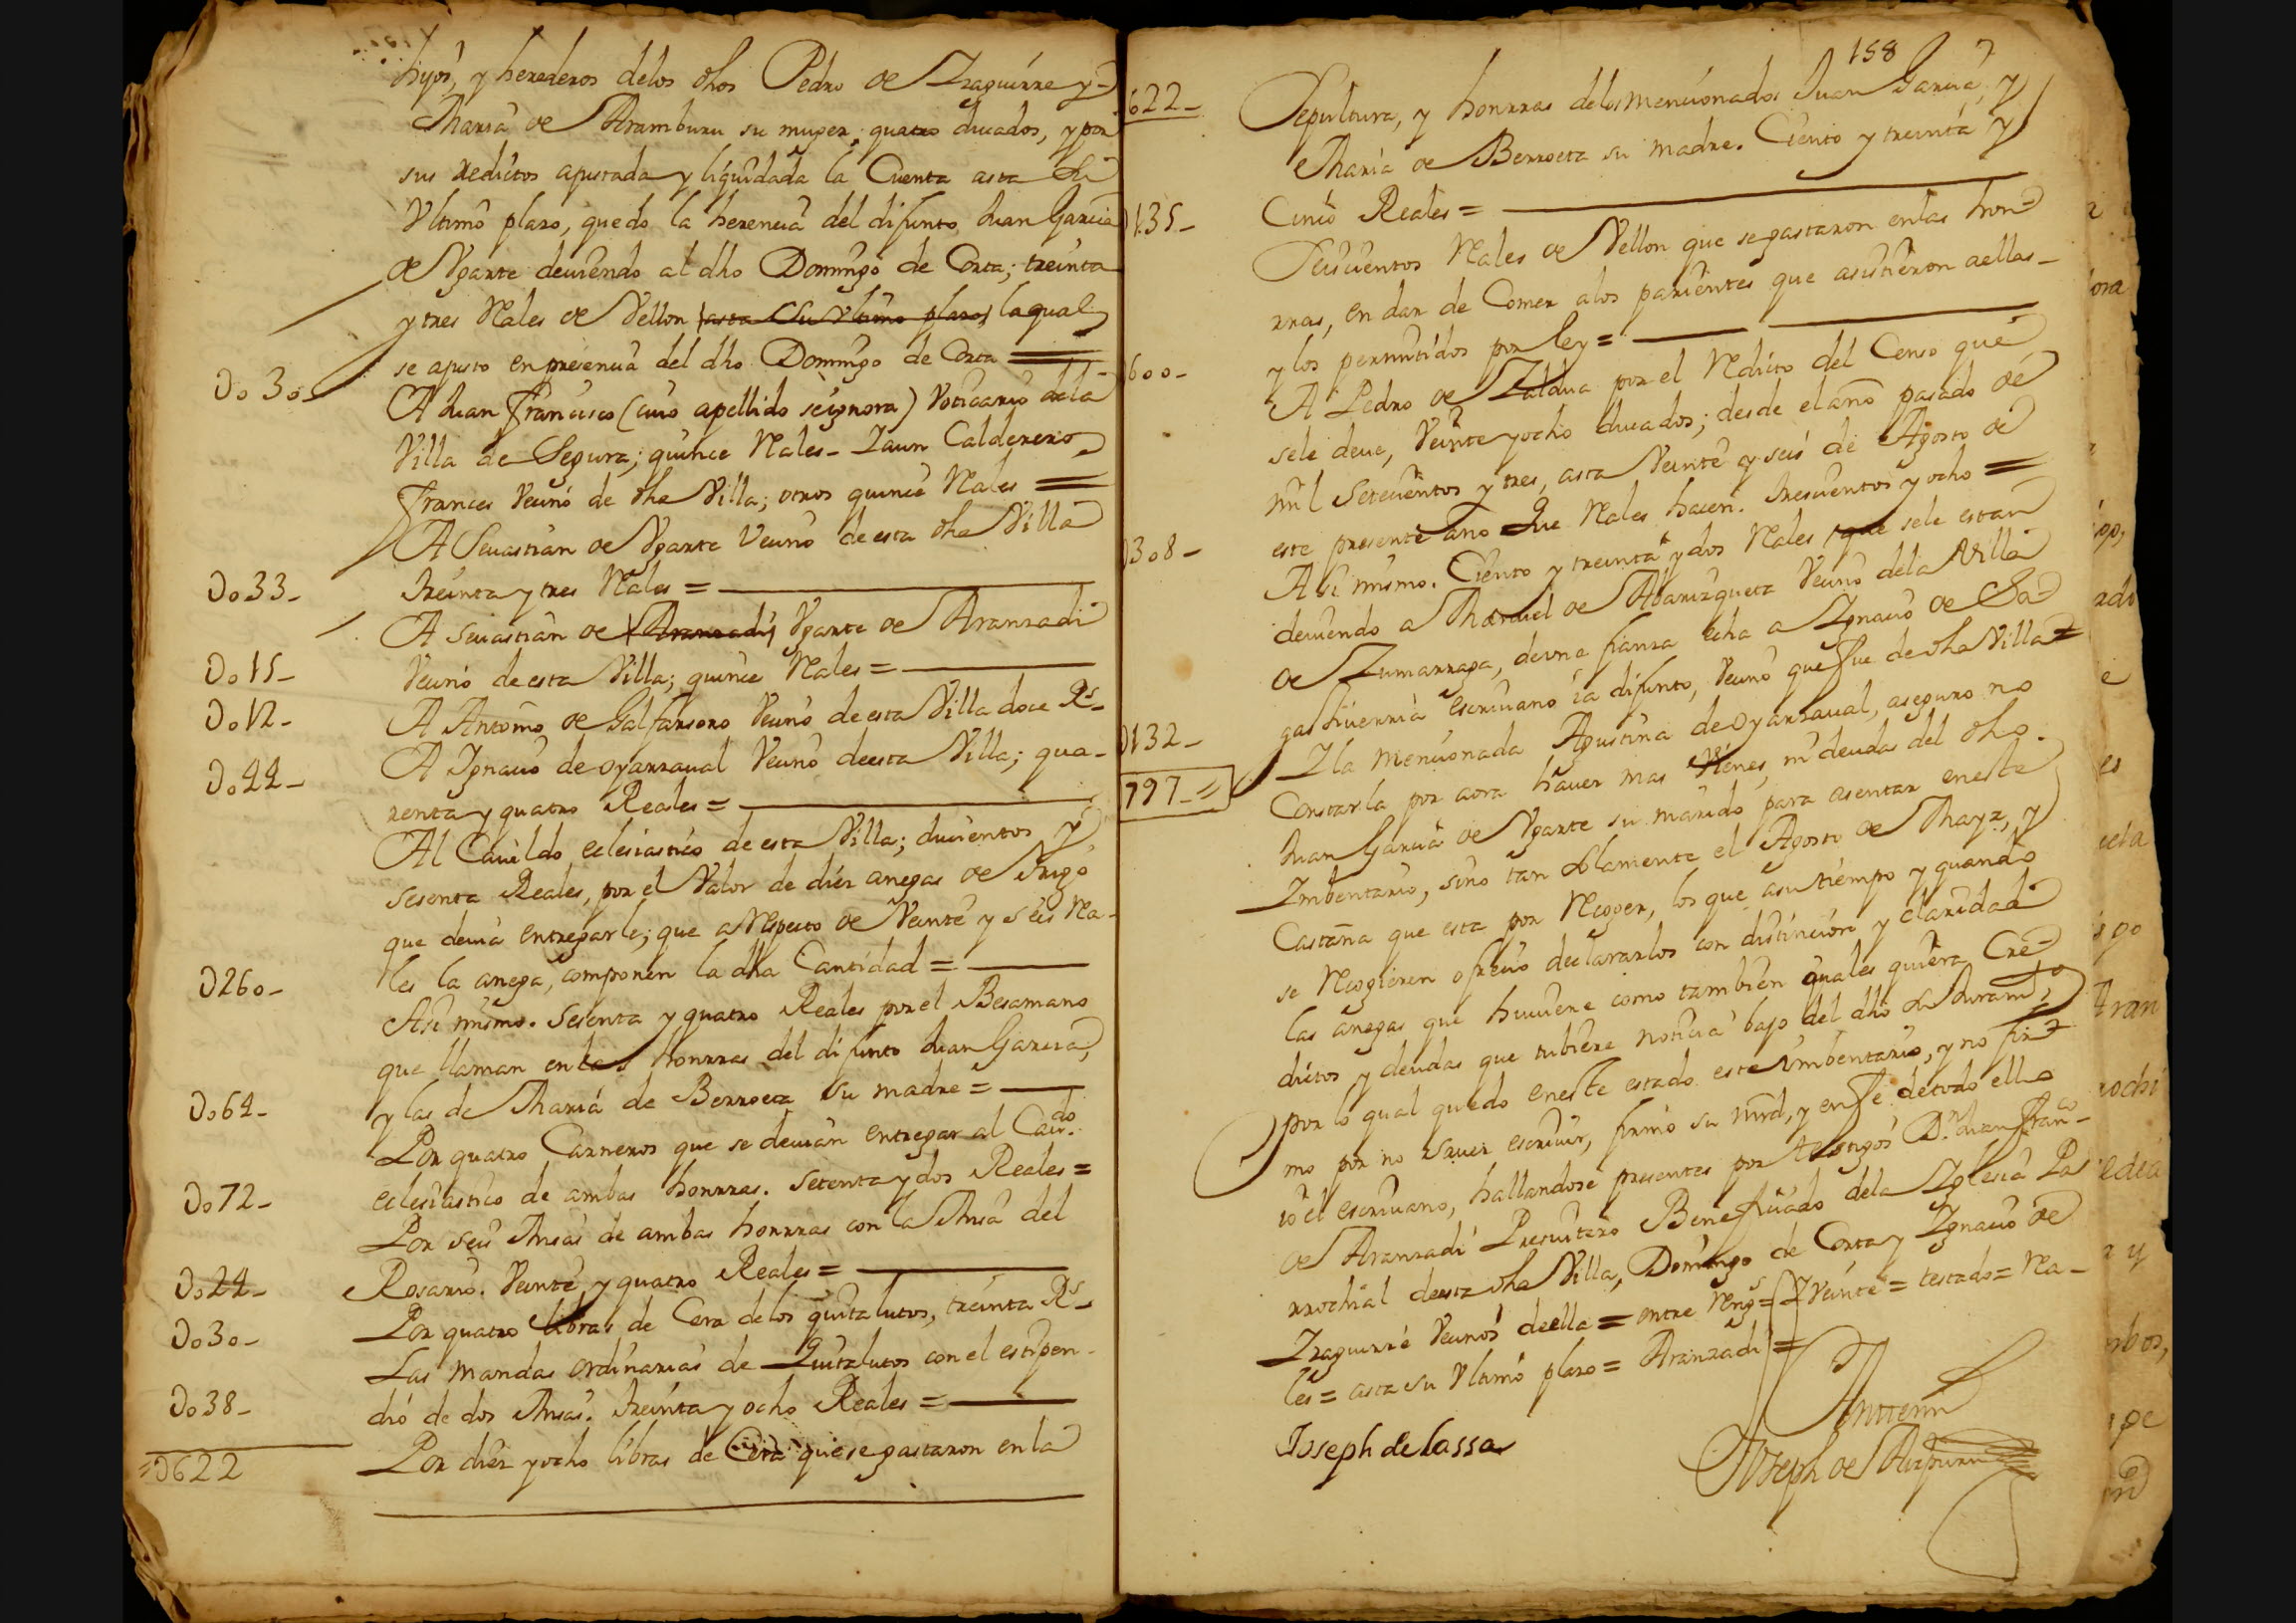 hijos, y herederos delos dhos Pedro de Yzaguirre y
Maria de Aramburu su muger; quatro ducados, y por
sus reditos ajustada y liquidada la Cuenta asta el
Vltimo plazo, quedo la herencia del difunto Juan Garcia
de Vgarte deuiendo al dho Domingo de Corta; treinta
y tres Rales de Vellon asta su vltimo plazo la qual
se ajusto en presencia del dho Domingo de Corta =
Do 30_
A Juan Francisco (cuio apellido seignora) Voticario dela
Villa de Segura; quince Rales_ Iaun Calderero
frances Vecino de dha Villa; otros quince Rales =
A Seuastian de Vgarte Vecino de esta dha Villa
Do33_
treinta y tres Rales =
A Seuastian de Aranzadi, Vgarte de Aranzadi
Do15_
Vecino de esta Villa; quince Rales =
Do12_
A Antonio de Galfarsoro Vecino de esta Villa doce Rs_
A Ignacio de oyarzaual Vecino deesta Villa; qua-
Do44_
renta y quatro Reales =
Al Cauildo eclesiastico de esta Villa; ducientos y
sesenta Reales, por el Valor de diez anegas de trigo
que deuia entregarle; que a Respecto de Veinte y seis Ra-
D260_
les la anega, componen la dha Cantidad =
Asi mismo. Sesenta y quatro Reales por el Besamano
que llaman en las honrras del difunto Juan Garcia,
Do64_
y las de Maria de Berroeta su madre =
Por quatro Carneros que se deuian entregar al Caudo.
Do72_
eclesiastico de ambas honrras. Setenta y dos Reales =
Por seis Misas de ambas honrras con la Misa del
Do24_
Rosario. Veinte y quatro Reales =
Do30_
Por quatro libras de Cera delos quitalutos, treinta Rs_
Las mandas ordinarias de Quitalutos con el estipen-
Do38_
dio de dos Misas. Treinta y ocho Reales =
Por diez y ocho libras de Cera que se gastaron en la
=D622
158
622_
Sepultura, y honrras delos mencionados Juan Garcia, y
Maria de Berroeta su madre. Ciento y treinta y
D135_
Cinco Reales =
Seiscientos Rales de Vellon que se gastaron enlas hon-
rras, en dar de Comer alos parientes que asistieron aellas_
600_
y los permitidos por ley =
A Pedro de Zaldua por el Redito del Censo que
sele deue, Veinte y ocho ducados; desde el año pasado de
mil Setecientos y tres, asta Veinte y seis de Agosto de
D308_
este presente año Que Rales hacen. Trescientos y ocho =
Asi mismo. Ciento y treinta y dos Rales que sele estan
deuiendo a Manuel de Abarizqueta Vecino dela Villa
de Zumarraga, de vna fianza echa a Ignacio de Sa-
D132_
gastiuerria escriuano ia difunto, Vecino que fue de dha Villa =
797_=
I la mencionada Agustina de oyarzaual, aseguro no
Constarla por aora hauer mas Vienes, ni deudas del dho.
Juan Garcia de Vgarte su marido para asentar en este
Imbentario, sino tan solamente el Agosto de Mayz, y
Castaña que esta por Recoger, los que asu tiempo y quando
se Recogieren ofrecio declararlos con distincion y claridad
las anegas que huuiere como tambien quales quiera Cre-
ditos y deudas que tubiere noticia bajo del dho su Juramto;
por lo qual quedo eneste estado este imbentario, y no fir-
mo por no sauer escriuir, firmo su mrd, y en fe de todo ello
io el escriuano, hallandose presentes por testigos Dn. Juan Franco-
de Aranzadi Presuitero Beneficiado dela Iglesia Pa-
rrochial deesta dha Villa, Domingo de Corta y Ignacio de
Yzaguirre Vecinos deella = entre Rengs = I Veinte = testado = Ra-
les = asta su Vltimo plazo = Aranzadi =
Joseph de lassa
Joseph de Aizpuru